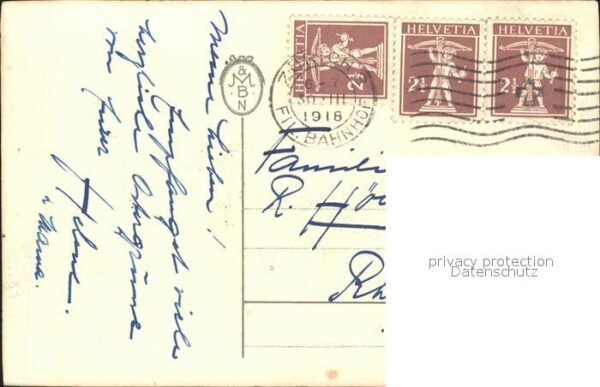 Meine Lieben!
Empfanget viele
herzliche Ostergrüsse
von Eurer
Helene
u Mama.
M & M
B
N
HELVETIA
2½
HELVETIA
2½
HELVETIA
2½
ZÜRICH
30.III
1918
FIL. BAHNHOF
Familie
R.
privacy protection
Datenschutz